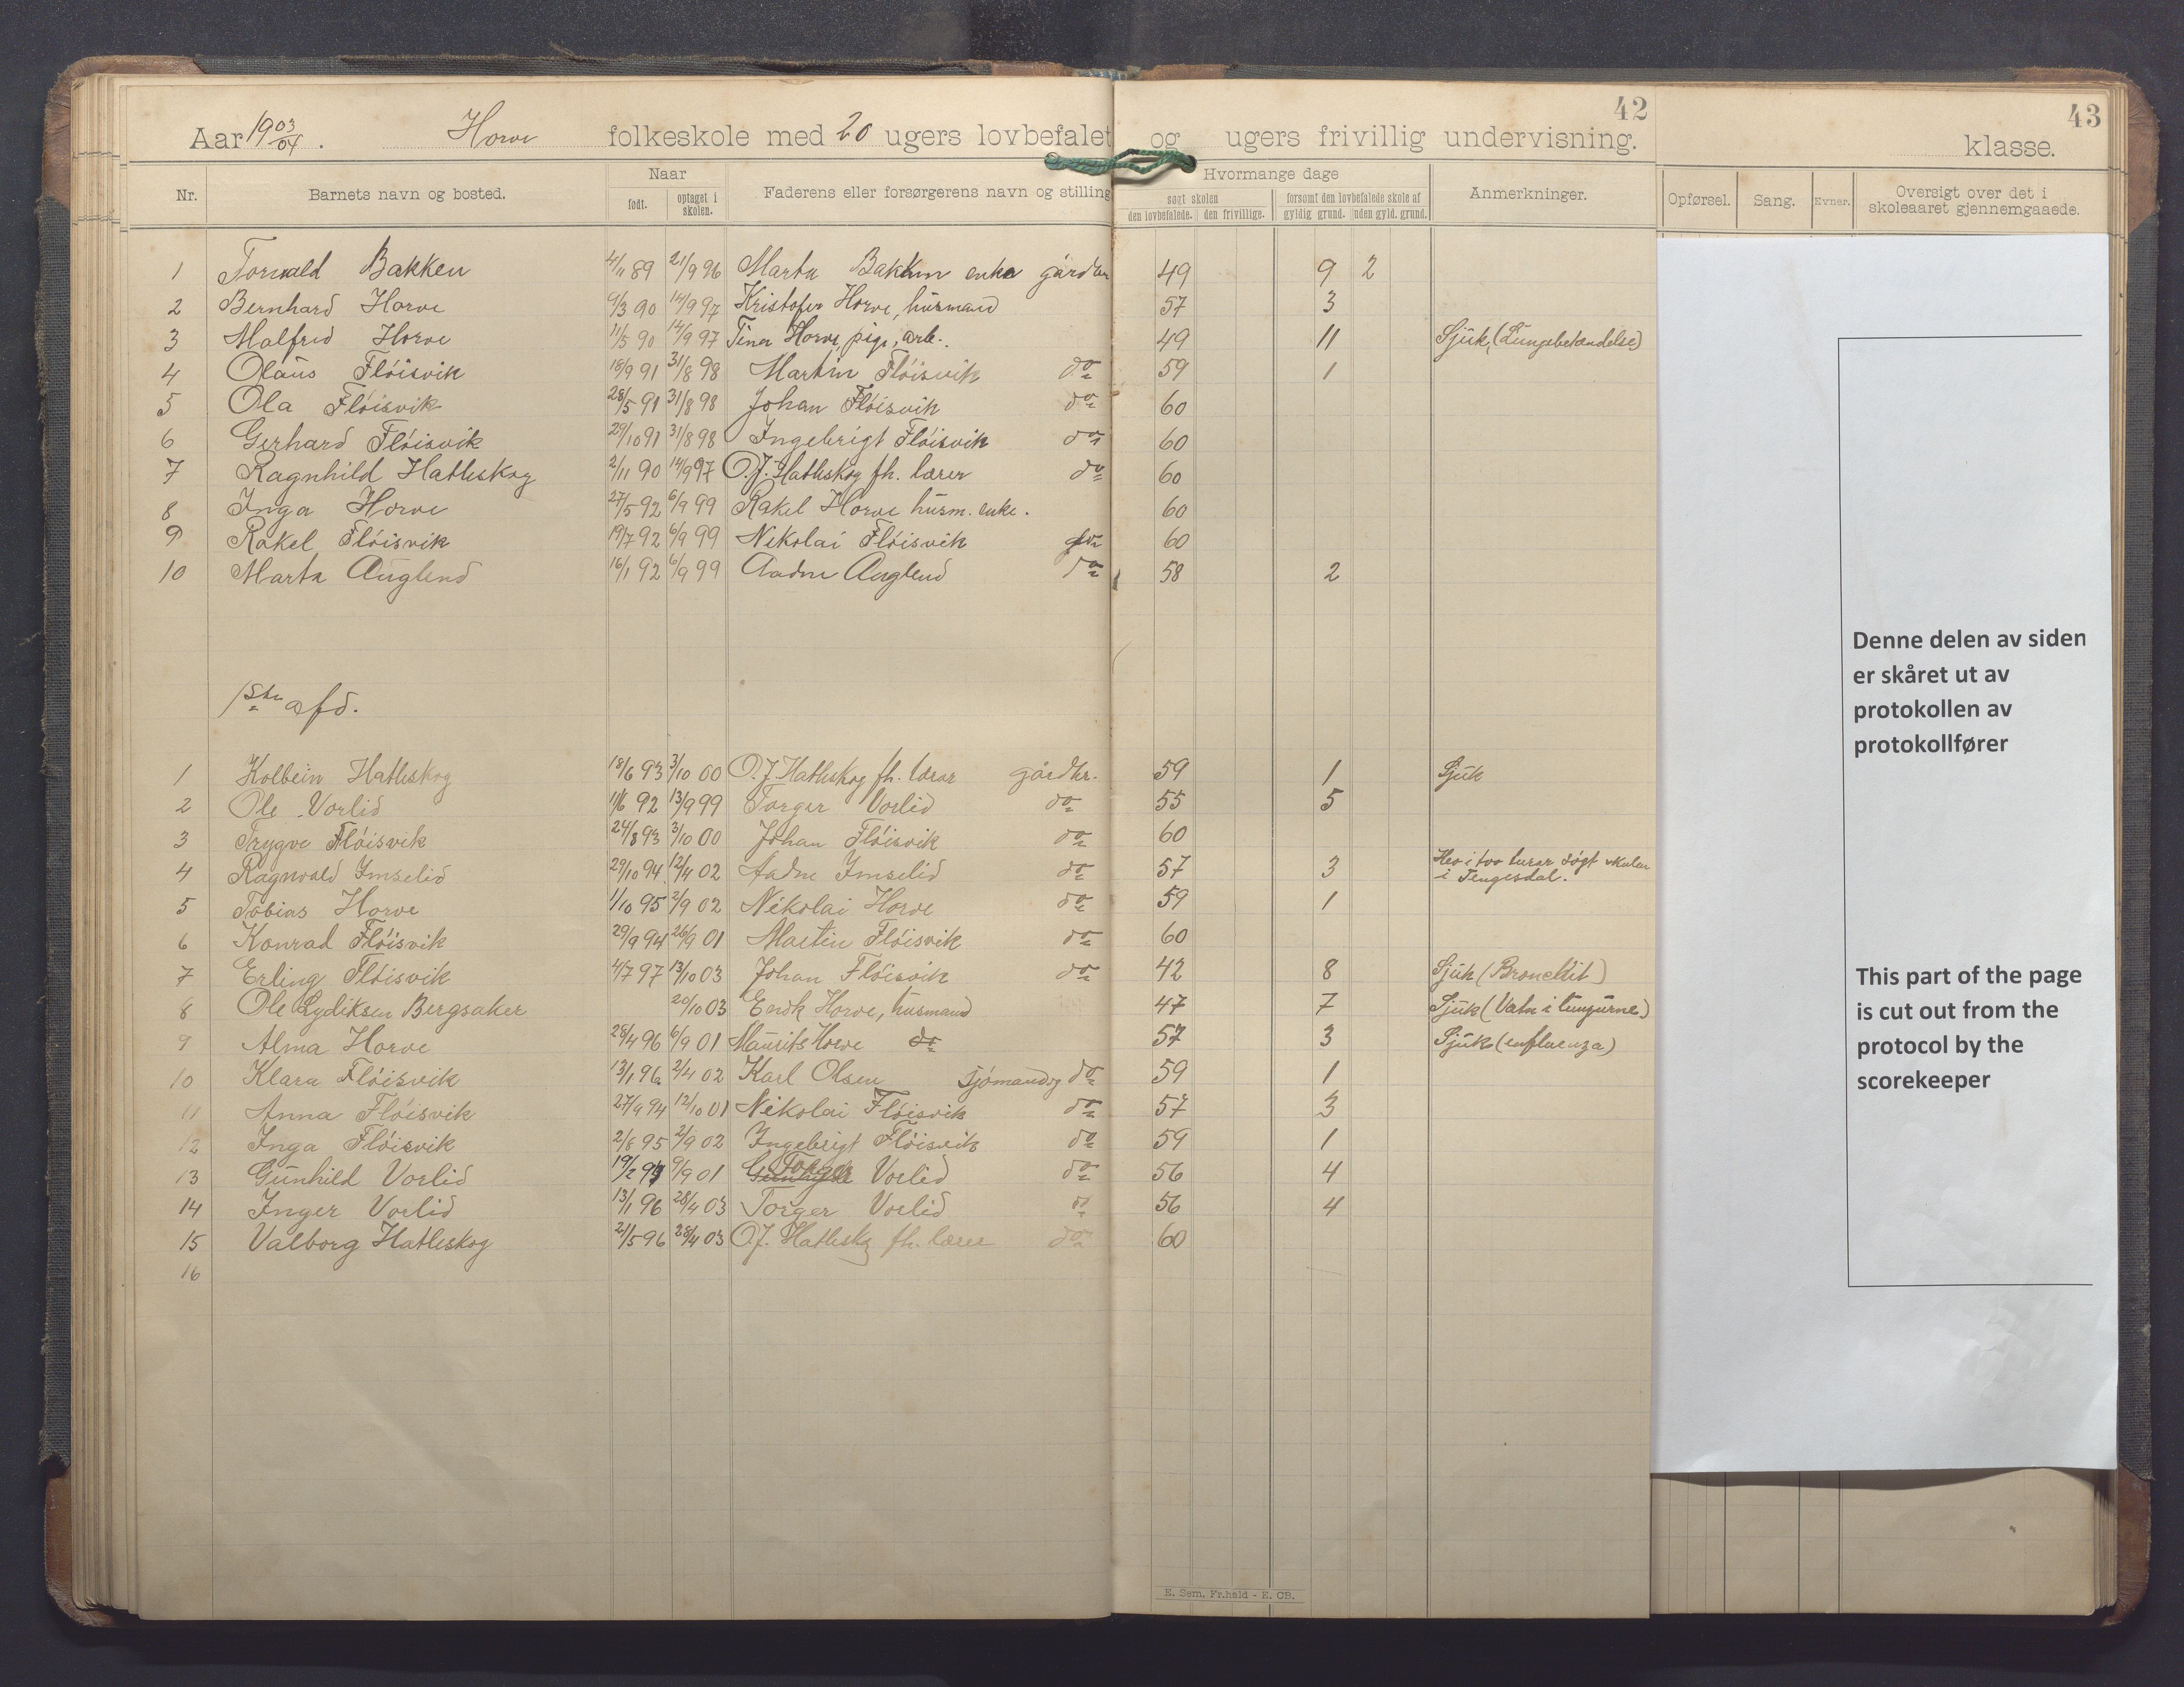 42
43
Aar 1903/04. Horve folkeskole med 20 ugers lovbefalet og ugers frivillig undervisning. klasse.
Nr. Barnets navn og bosted. Naar født. optaget i skolen. Faderens eller forsørgerens navn og stilling Hvormange dage søgt skolen den lovbefalede. den frivillige. forsømt den lovbefalede skole af gyldig grund. uden gyld. grund. Anmerkninger. Opførsel. Sang. Evner. Oversigt over det i skoleaaret gjennemgaaede.
1 Torvald Bakken 4/11 89 21/9 96 Marta Bakken enke gårdbr 49 9 2
2 Bernhard Horve 9/3 90 14/9 97 Kristofer Horve, husmand 57 3
3 Malfred Horve 11/5 90 14/9 97 Tina Horve, pige, arb. 49 11 Sjuk, (Lungebetændelse)
4 Olaus Flöisvik 18/9 91 31/8 98 Martin Flöisvik do 59 1
5 Ola Flöisvik 28/5 91 31/8 98 Johan Flöisvik do 60
6 Gerhard Flöisvik 29/10 91 31/8 98 Ingebrigt Flöisvik do 60
7 Ragnhild Hatleskog 2/11 90 14/9 97 O.J. Hatleskog fh. lærer do 60
8 Inga Horve 27/5 92 6/9 99 Rakel Horve husm. enke. 60
9 Rakel Flöisvik 19/7 92 6/9 99 Nikolai Flöisvik do 60
10 Marta Auglend 16/1 92 6/9 99 Aadne Auglend do 58 2
1ste afd.
1 Kolbein Hatleskog 18/6 93 3/10 00 O.J. Hatleskog fh. lærar gårdbr. 59 1 Sjuk
2 Ole Vorlid 11/6 92 13/9 99 Torger Vorlid do 55 5
3 Trygve Flöisvik 24/8 93 3/10 00 Johan Flöisvik do 60
4 Ragnvald Imselid 29/10 94 12/4 02 Aadne Imselid do 57 3 Hev i tvo turar søgt skulen
i Tengesdal.
5 Tobias Horve 1/10 95 2/9 02 Nikolai Horve do 59 1
6 Konrad Flöisvik 29/9 94 26/9 01 Martin Flöisvik do 60
7 Erling Flöisvik 4/7 97 13/10 03 Johan Flöisvik do 42 8 Sjuk (Bronchit)
8 Ole Lydiksen Bergsaker 20/10 03 Enok Horve, husmand 47 7 Sjuk (Vatn i lungurne)
9 Alma Horve 28/4 96 6/9 01 Maurits Horve do 57 3 Sjuk (enfluenza)
10 Klara Flöisvik 13/1 96 2/4 02 Karl Olsen sjömand og do 59 1
11 Anna Flöisvik 27/9 94 12/10 01 Nikolai Flöisvik do 57 3
12 Inga Flöisvik 2/8 95 2/9 02 Ingebrigt Flöisvik do 59 1
13 Gunhild Vorlid 19/2 94 9/9 01 Torger Vorlid do 56 4
14 Inger Vorlid 13/1 96 28/4 03 Torger Vorlid do 56 4
15 Valborg Hatleskog 21/5 96 28/4 03 O.J. Hatleskog fh. lærer do 60
16
E. Sem, Fr.hald - E. CB.
Denne delen av siden
er skåret ut av
protokollen av
protokollfører
This part of the page
is cut out from the
protocol by the
scorekeeper